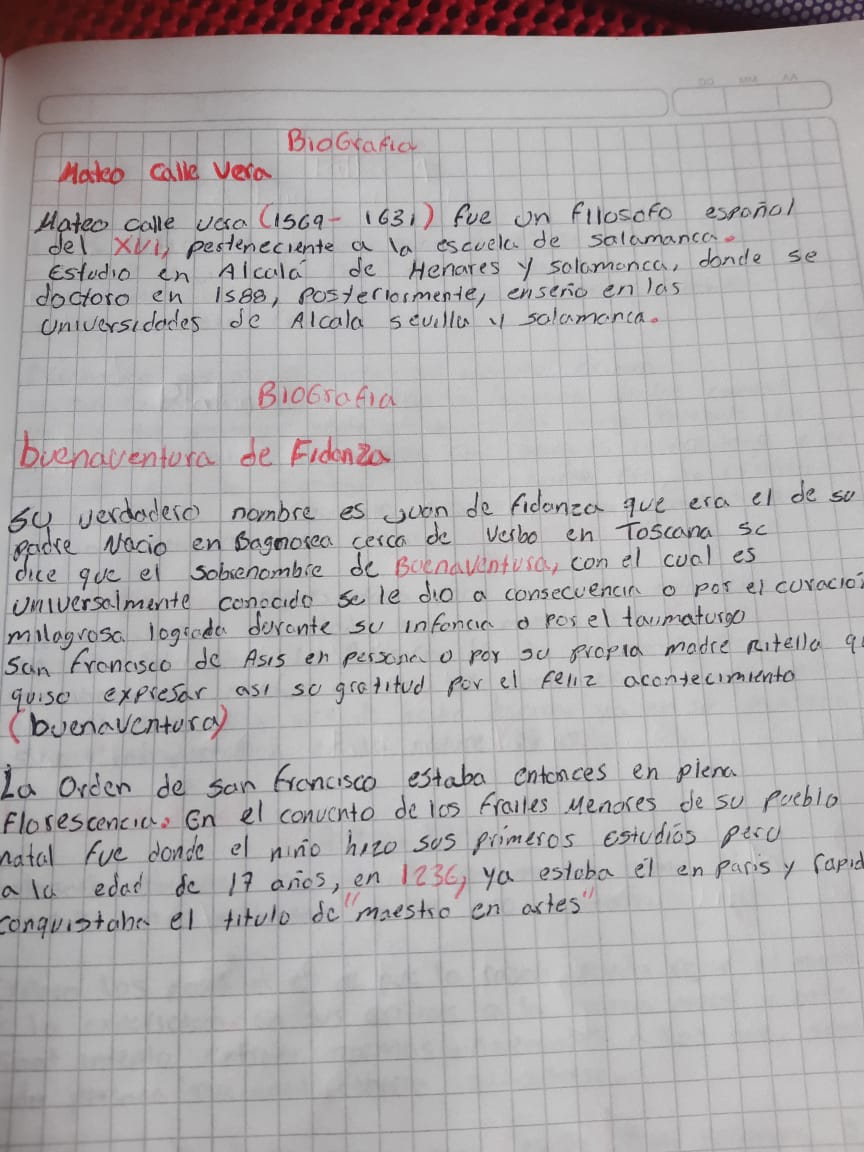 DD MM AA
BioGrafia
Mateo Calle Vera
Mateo calle vera (1569- 1631) fue un filosofo español
del XVI, perteneciente a la escuela de salamanca.
Estudio en Alcalá de Henares y salamanca, donde se
doctoro en 1588, Posteriormente, enseño en las
Universidades de Alcala sevilla y salamanca.
BioGrafia
buenaventura de Fidanza
Su verdadero nombre es Juan de fidanza que era el de su
padre Nacio en Bagnorea cerca de Verbo en Toscana se
dice que el sobrenombre de Buenaventura, con el cual es
Universalmente conocido se le dio a consecuencia o por el curacio
milagrosa lograda durante su infancia o por el taumaturgo
San francisco de Asis en persona o por su propia madre Ritella q
quiso expresar asi su gratitud por el feliz acontecimiento
(buenaventura)
La Orden de san francisco estaba entonces en plena
Florescencia. En el convento de los frailes Menores de su Pueblo
natal fue donde el niño hizo sus primeros estudios pero
a la edad de 17 años, en 1236, ya estaba él en paris y rapid
conquistaba el titulo de "maestro en artes"